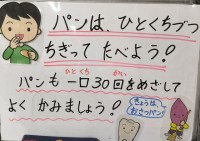 パンは、ひとくちづつ
ちぎって たべよう!
パンも 一口30回をめざして
ひと くち かい
よく かみましょう!
きょうは、
おさつパン!